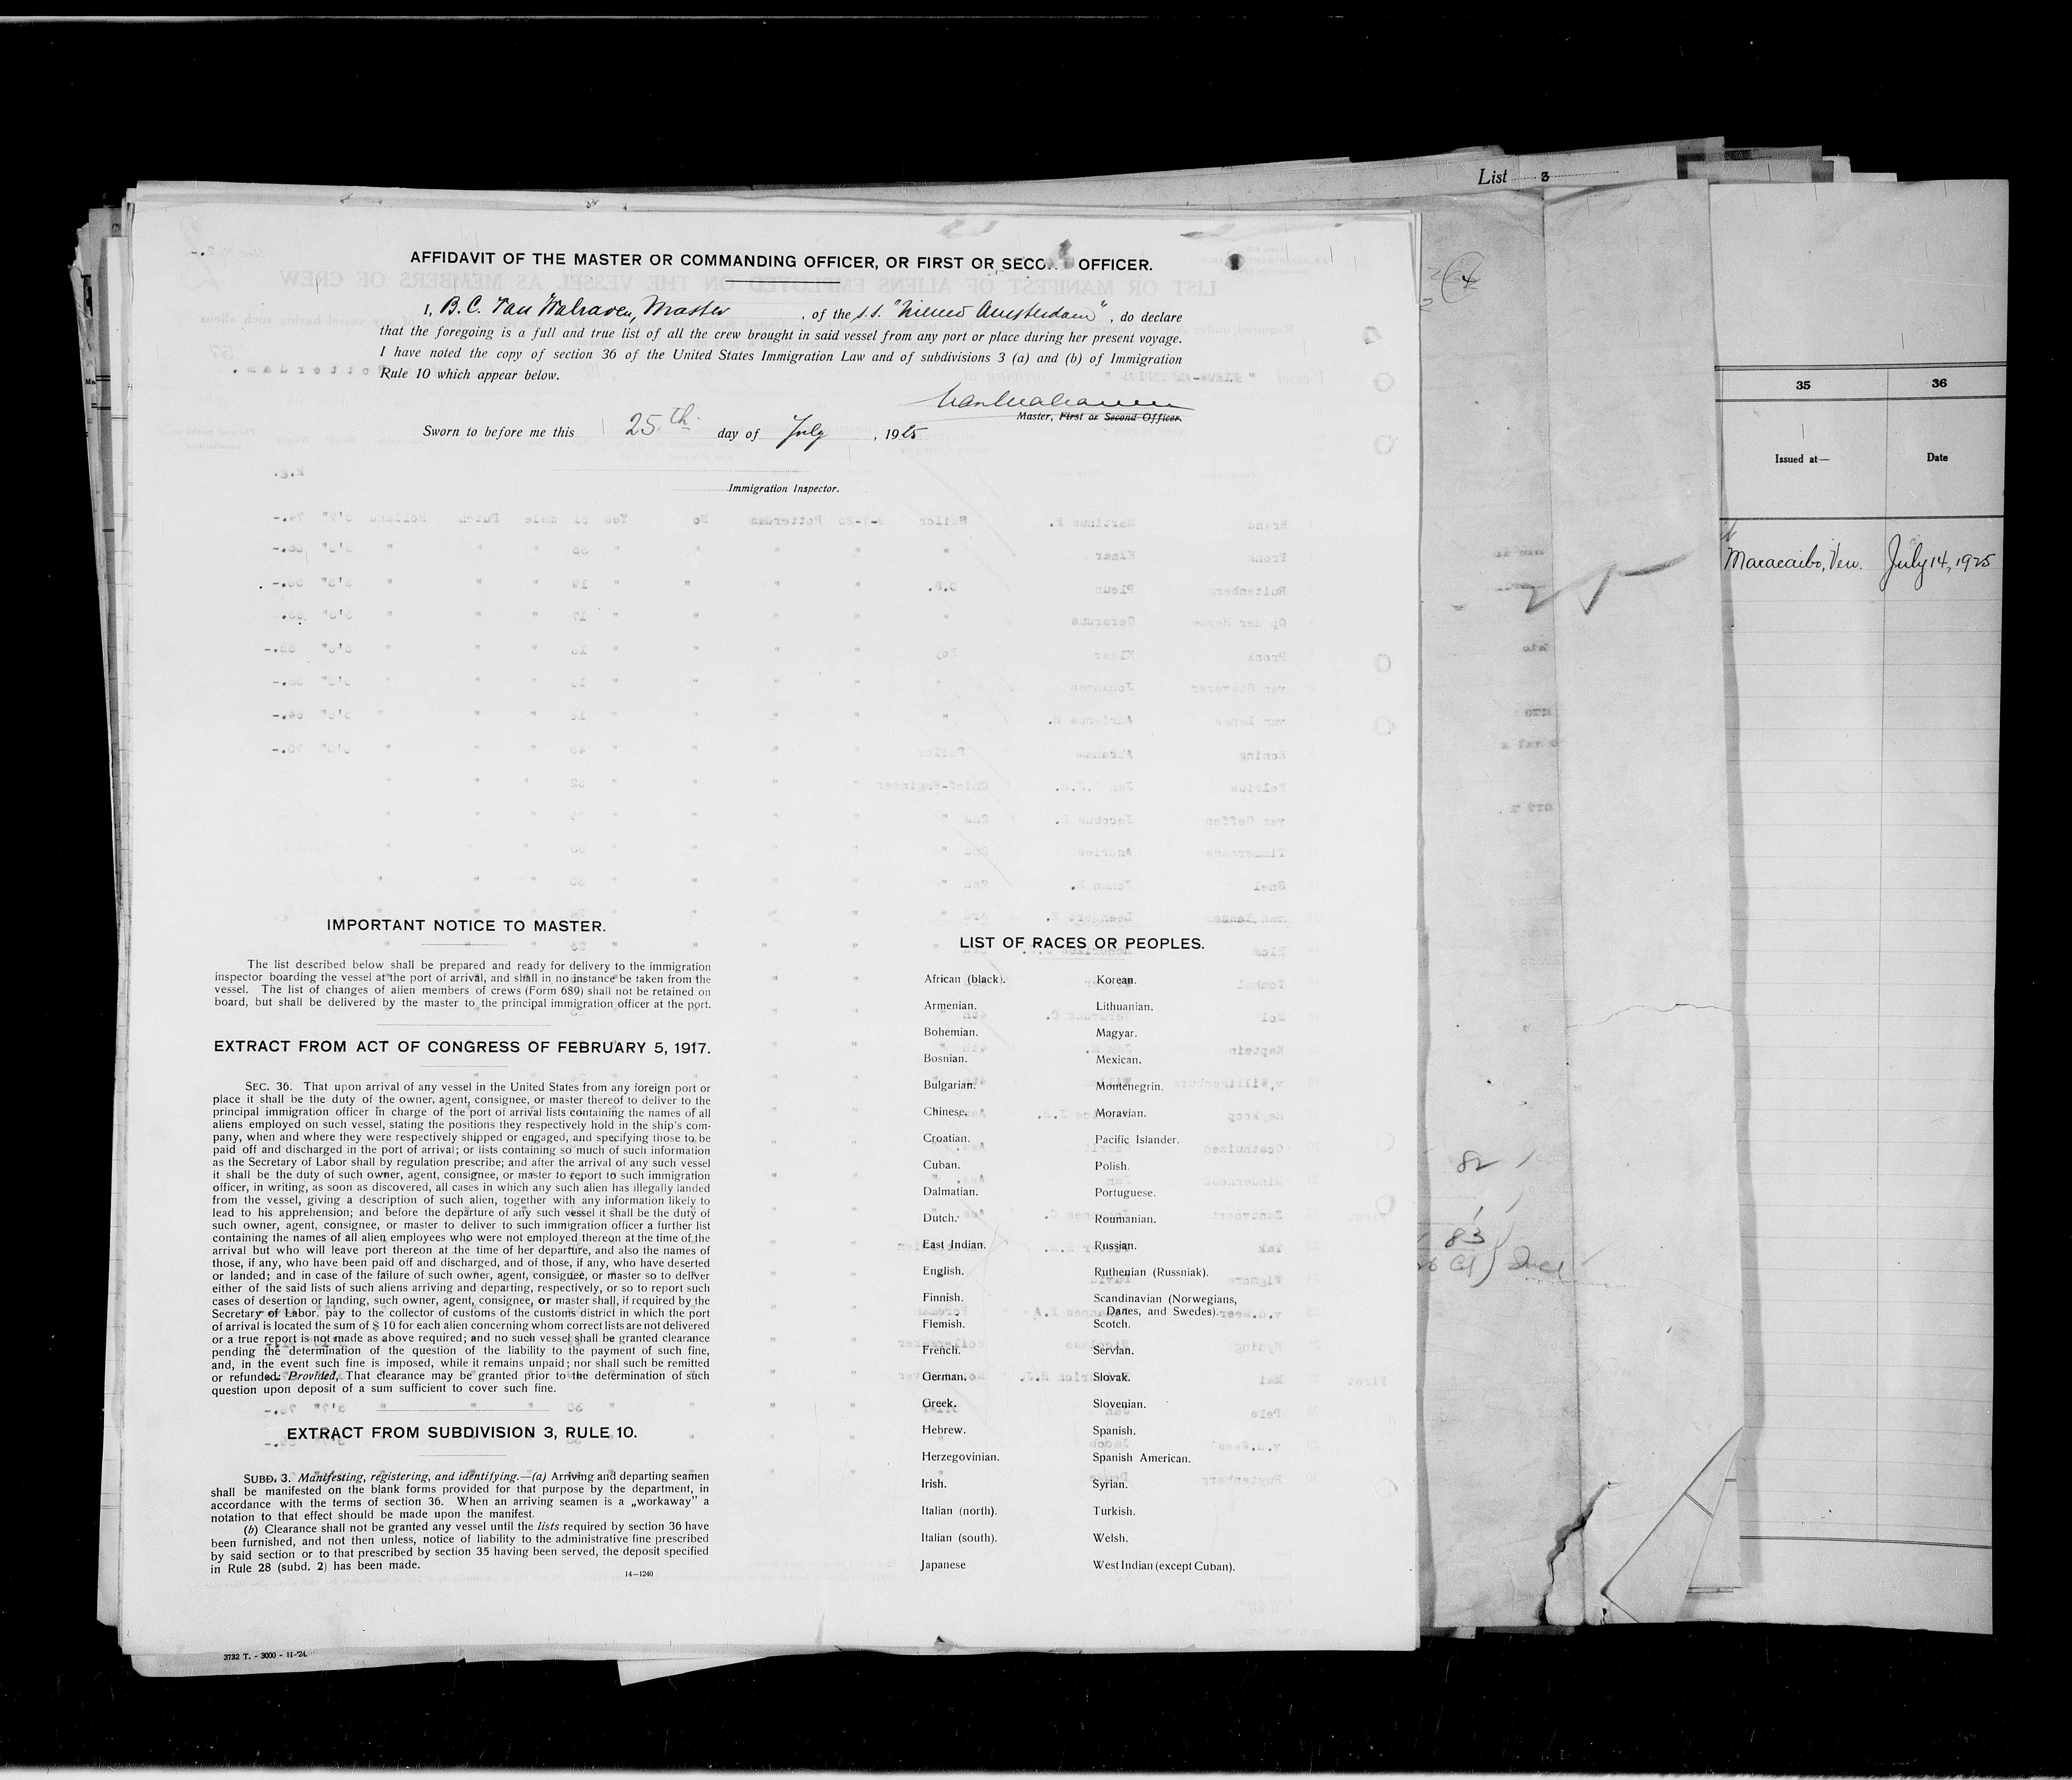 List 3
AFFIDAVIT OF THE MASTER OR COMMANDING OFFICER, OR FIRST OR SECO OFFICER.
I, B. C. Van Walraven, Master, of the s.s. "Nieuw Amsterdam", do declare
that the foregoing is a full and true list of all the crew brought in said vessel from any port or place during her present voyage.
I have noted the copy of section 36 of the United States Immigration Law and of subdivisions 3 (a) and (b) of Immigration
Rule 10 which appear below.
Master, First or Second Officer.
Sworn to before me this 25th day of July, 1925
Immigration Inspector.
IMPORTANT NOTICE TO MASTER.
The list described below shall be prepared and ready for delivery to the immigration
inspector boarding the vessel at the port of arrival, and shall in no instance be taken from the
vessel. The list of changes of alien members of crews (Form 689) shall not be retained on
board, but shall be delivered by the master to the principal immigration officer at the port.
EXTRACT FROM ACT OF CONGRESS OF FEBRUARY 5, 1917.
SEC. 36. That upon arrival of any vessel in the United States from any foreign port or
place it shall be the duty of the owner, agent, consignee, or master thereof to deliver to the
principal immigration officer in charge of the port of arrival lists containing the names of all
aliens employed on such vessel, stating the positions they respectively hold in the ship's com-
pany, when and where they were respectively shipped or engaged, and specifying those to be
paid off and discharged in the port of arrival; or lists containing so much of such information
as the Secretary of Labor shall by regulation prescribe; and after the arrival of any such vessel
it shall be the duty of such owner, agent, consignee, or master to report to such immigration
officer, in writing, as soon as discovered, all cases in which any such alien has illegally landed
from the vessel, giving a description of such alien, together with any information likely to
lead to his apprehension; and before the departure of any such vessel it shall be the duty of
such owner, agent, consignee, or master to deliver to such immigration officer a further list
containing the names of all alien employees who were not employed thereon at the time of the
arrival but who will leave port thereon at the time of her departure, and also the names of
those, if any, who have been paid off and discharged, and of those, if any, who have deserted
or landed; and in case of the failure of such owner, agent, consignee, or master so to deliver
either of the said lists of such aliens arriving and departing, respectively, or so to report such
cases of desertion or landing, such owner, agent, consignee, or master shall, if required by the
Secretary of Labor, pay to the collector of customs of the customs district in which the port
of arrival is located the sum of $ 10 for each alien concerning whom correct lists are not delivered
or a true report is not made as above required; and no such vessel shall be granted clearance
pending the determination of the question of the liability to the payment of such fine,
and, in the event such fine is imposed, while it remains unpaid; nor shall such be remitted
or refunded: Provided, That clearance may be granted prior to the determination of such
question upon deposit of a sum sufficient to cover such fine.
EXTRACT FROM SUBDIVISION 3, RULE 10.
SUBD. 3. Manifesting, registering, and identifying.—(a) Arriving and departing seamen
shall be manifested on the blank forms provided for that purpose by the department, in
accordance with the terms of section 36. When an arriving seamen is a „workaway" a
notation to that effect should be made upon the manifest.
(b) Clearance shall not be granted any vessel until the lists required by section 36 have
been furnished, and not then unless, notice of liability to the administrative fine prescribed
by said section or to that prescribed by section 35 having been served, the deposit specified
in Rule 28 (subd. 2) has been made.
14—1240
3732 T. - 3000 - 11-'24.
LIST OF RACES OR PEOPLES.
African (black). Korean.
Armenian. Lithuanian.
Bohemian. Magyar.
Bosnian. Mexican.
Bulgarian. Montenegrin.
Chinese. Moravian.
Croatian. Pacific Islander.
Cuban. Polish.
Dalmatian. Portuguese.
Dutch. Roumanian.
East Indian. Russian.
English. Ruthenian (Russniak).
Finnish. Scandinavian (Norwegians,
Danes, and Swedes).
Flemish. Scotch.
French. Servian.
German. Slovak.
Greek. Slovenian.
Hebrew. Spanish.
Herzegovinian. Spanish American.
Irish. Syrian.
Italian (north). Turkish.
Italian (south). Welsh.
Japanese West Indian (except Cuban).
82
83
35 36
Issued at— Date
Maracaibo, Ven. July 14, 1925